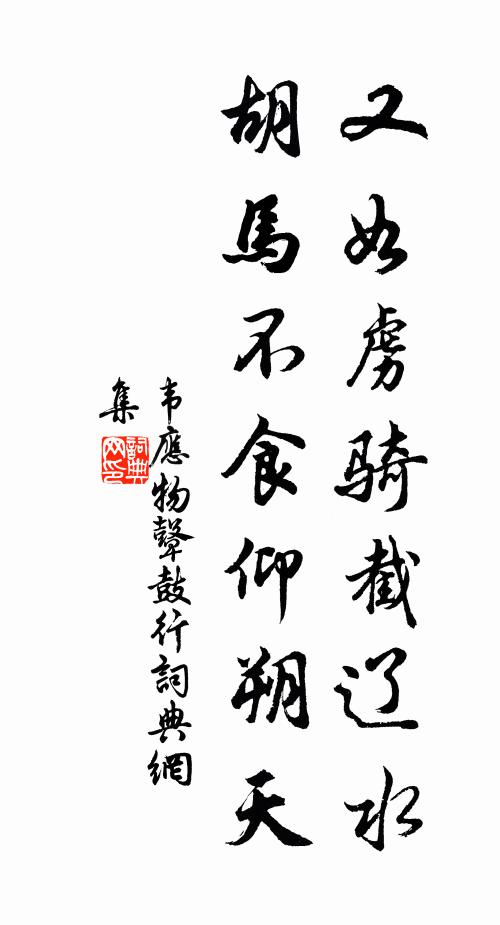 又如虏骑截辽水
胡马不食仰朔天
韦應物鼙鼓行詞典網
集
詞典网印